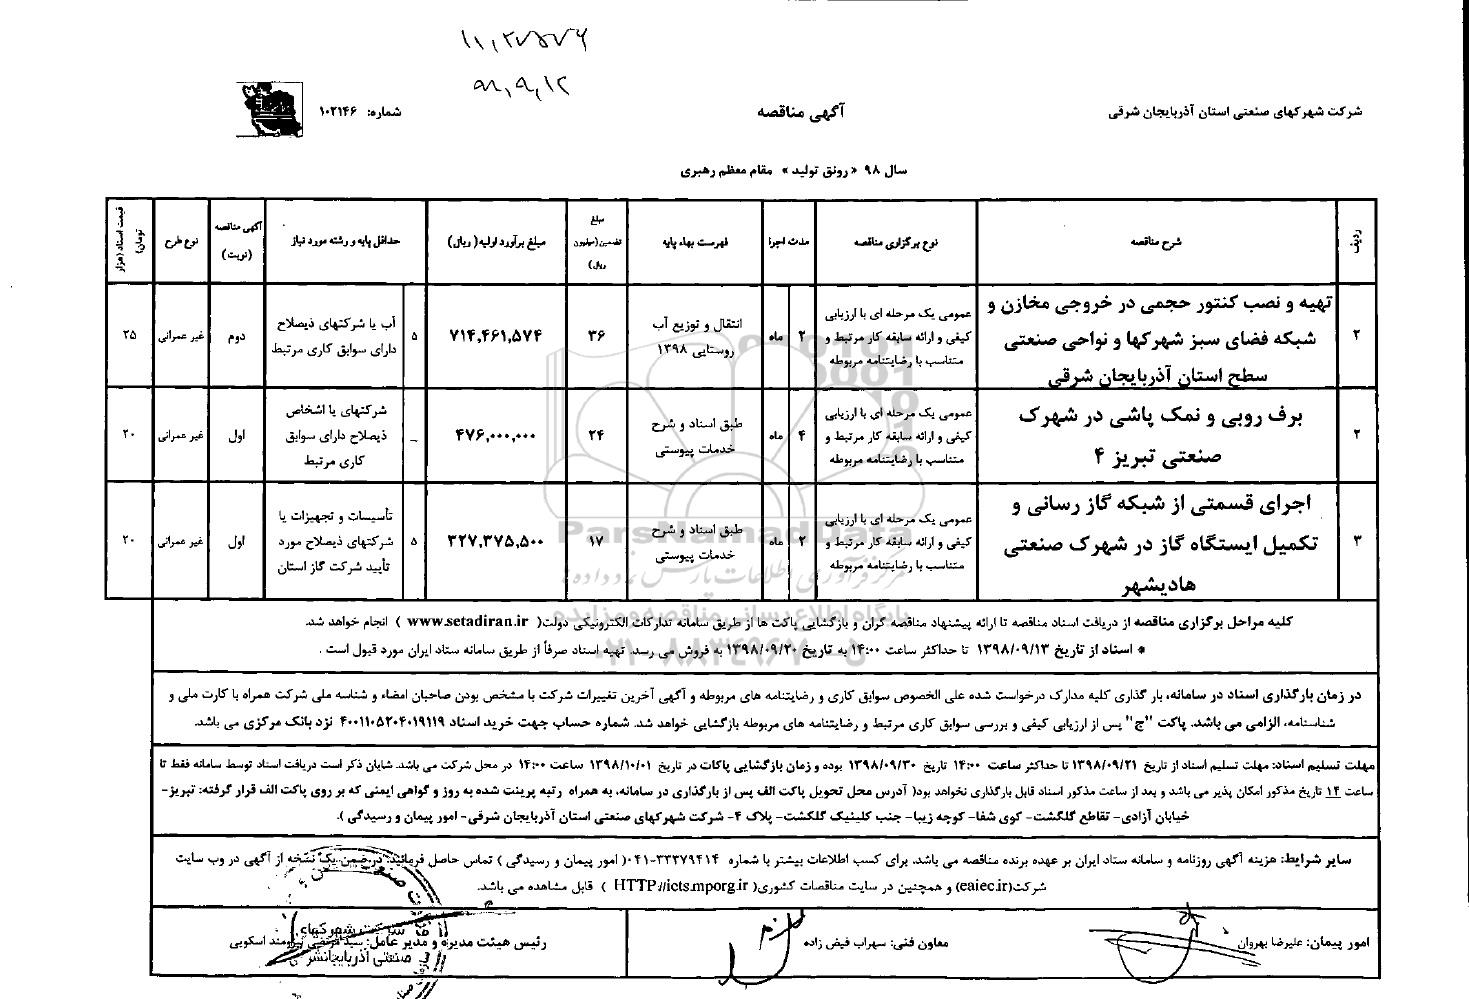 ۱۱,۲۷۵۷۶
۹۸,۹,۱۲
شرکت شهرکهای صنعتی استان آذربایجان شرقی
آگهی مناقصه
شماره: ۱۰۲۱۴۶
سال ۹۸ « رونق تولید » مقام معظم رهبری
ردیف
شرح مناقصه
نوع برگزاری مناقصه
مدت اجرا
فهرست بهاء پایه
مبلغ
تضمین(میلیون
ریال)
مبلغ برآورد اولیه( ریال)
حداقل پایه و رشته مورد نیاز
آگهی مناقصه
(نوبت)
نوع طرح
قیمت اسناد (هزار
تومان)
۲
تهیه و نصب کنتور حجمی در خروجی مخازن و
شبکه فضای سبز شهرکها و نواحی صنعتی
سطح استان آذربایجان شرقی
عمومی یک مرحله ای با ارزیابی
کیفی و ارائه سابقه کار مرتبط و
متناسب با رضایتنامه مربوطه
۲ ماه
انتقال و توزیع آب
روستایی ۱۳۹۸
۳۶
۷۱۴,۴۶۱,۵۷۴
۵
آب یا شرکتهای ذیصلاح
دارای سوابق کاری مرتبط
دوم
غیر عمرانی
۲۵
۲
برف روبی و نمک پاشی در شهرک
صنعتی تبریز ۴
عمومی یک مرحله ای با ارزیابی
کیفی و ارائه سابقه کار مرتبط و
متناسب با رضایتنامه مربوطه
۴ ماه
طبق اسناد و شرح
خدمات پیوستی
۲۴
۴۷۶,۰۰۰,۰۰۰
_
شرکتهای یا اشخاص
ذیصلاح دارای سوابق
کاری مرتبط
اول
غیر عمرانی
۲۰
۳
اجرای قسمتی از شبکه گاز رسانی و
تکمیل ایستگاه گاز در شهرک صنعتی
هادیشهر
عمومی یک مرحله ای با ارزیابی
کیفی و ارائه سابقه کار مرتبط و
متناسب با رضایتنامه مربوطه
۲ ماه
طبق اسناد و شرح
خدمات پیوستی
۱۷
۳۲۷,۳۷۵,۵۰۰
۵
تأسیسات و تجهیزات یا
شرکتهای ذیصلاح مورد
تأیید شرکت گاز استان
اول
غیر عمرانی
۲۰
ParsNamadData
پایگاه اطلاع رسانی مناقصه و مزایده
۰۲۱-۸۸۳۴۹۶۷۰-۵
کلیه مراحل برگزاری مناقصه از دریافت اسناد مناقصه تا ارائه پیشنهاد مناقصه گران و بازگشایی پاکت ها از طریق سامانه تدارکات الکترونیکی دولت( www.setadiran.ir ) انجام خواهد شد.
* اسناد از تاریخ ۱۳۹۸/۰۹/۱۳ تا حداکثر ساعت ۱۴:۰۰ به تاریخ ۱۳۹۸/۰۹/۲۰ به فروش می رسد. تهیه اسناد صرفاً از طریق سامانه ستاد ایران مورد قبول است .
در زمان بارگذاری اسناد در سامانه، بار گذاری کلیه مدارک درخواست شده علی الخصوص سوابق کاری و رضایتنامه های مربوطه و آگهی آخرین تغییرات شرکت با مشخص بودن صاحبان امضاء و شناسه ملی شرکت همراه با کارت ملی و
شناسنامه، الزامی می باشد. پاکت "ج" پس از ارزیابی کیفی و بررسی سوابق کاری مرتبط و رضایتنامه های مربوطه بازگشایی خواهد شد. شماره حساب جهت خرید اسناد ۴۰۰۱۱۰۵۲۰۴۰۱۹۱۱۹ نزد بانک مرکزی می باشد.
مهلت تسلیم اسناد: مهلت تسلیم اسناد از تاریخ ۱۳۹۸/۰۹/۲۱ تا حداکثر ساعت ۱۴:۰۰ تاریخ ۱۳۹۸/۰۹/۳۰ بوده و زمان بازگشایی پاکات در تاریخ ۱۳۹۸/۱۰/۰۱ ساعت ۱۴:۰۰ در محل شرکت می باشد. شایان ذکر است دریافت اسناد توسط سامانه فقط تا
ساعت ۱۴ تاریخ مذکور امکان پذیر می باشد و بعد از ساعت مذکور اسناد قابل بارگذاری نخواهد بود( آدرس محل تحویل پاکت الف پس از بارگذاری در سامانه، به همراه رتبه پرینت شده به روز و گواهی ایمنی که بر روی پاکت الف قرار گرفته: تبریز-
خیابان آزادی- تقاطع گلگشت- کوی شفا- کوچه زیبا- جنب کلینیک گلگشت- پلاک ۴- شرکت شهرکهای صنعتی استان آذربایجان شرقی- امور پیمان و رسیدگی ).
سایر شرایط: هزینه آگهی روزنامه و سامانه ستاد ایران بر عهده برنده مناقصه می باشد. برای کسب اطلاعات بیشتر با شماره ۳۳۳۷۹۴۱۴-۰۴۱( امور پیمان و رسیدگی ) تماس حاصل فرمائید. در ضمن یک نسخه از آگهی در وب سایت
شرکت(eaiec.ir) و همچنین در سایت مناقصات کشوری( HTTP://icts.mporg.ir ) قابل مشاهده می باشد.
امور پیمان: علیرضا بهروان
معاون فنی: سهراب فیض زاده
رئیس هیئت مدیره و مدیر عامل: سید مرتضی نیرومند اسکویی
شرکت شهرکهای
صنعتی آذربایجانشرقی